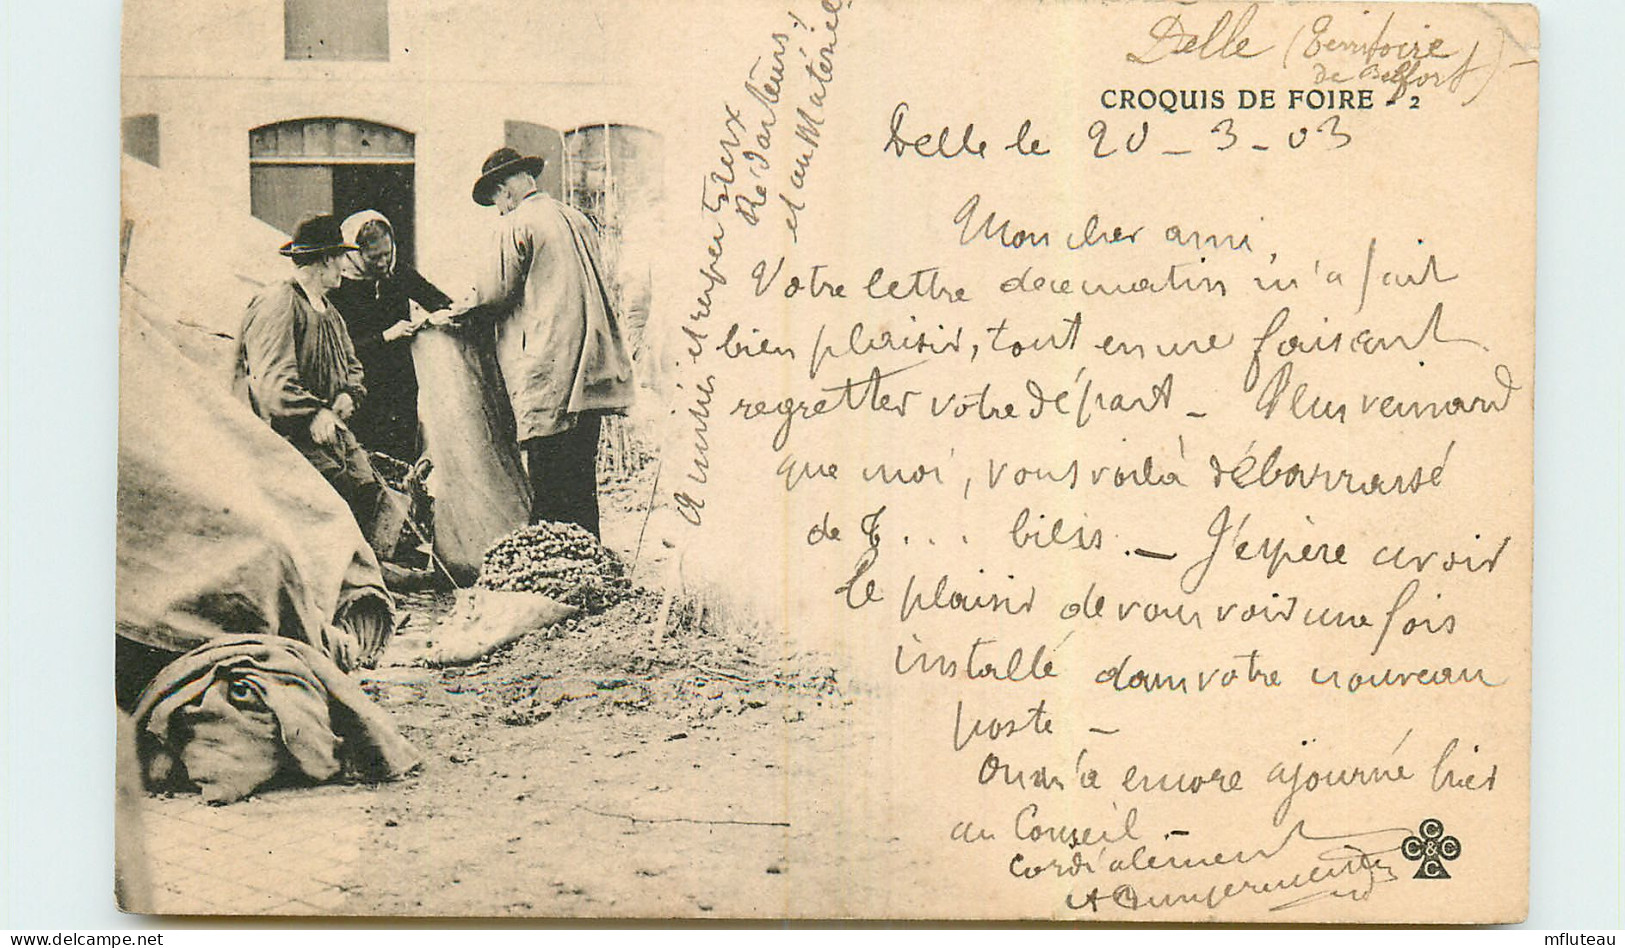 Delle (Territoire
de Belfort)
CROQUIS DE FOIRE - 2
Delle le 20 - 3 - 03
Mon cher ami,
Votre lettre de ce matin m'a fait
bien plaisir, tout en me faisant
regretter votre départ - Plus veinard
que moi, vous voilà débarrassé
de T... biliss. - J'espère avoir
le plaisir de vous voir une fois
installé dans votre nouveau
poste -
On m'a encore ajourné hier
au Conseil -
Cordialement
Amitiés et respectueux
Rédacteurs!
et au Matériel
C C & C C
mfluteau